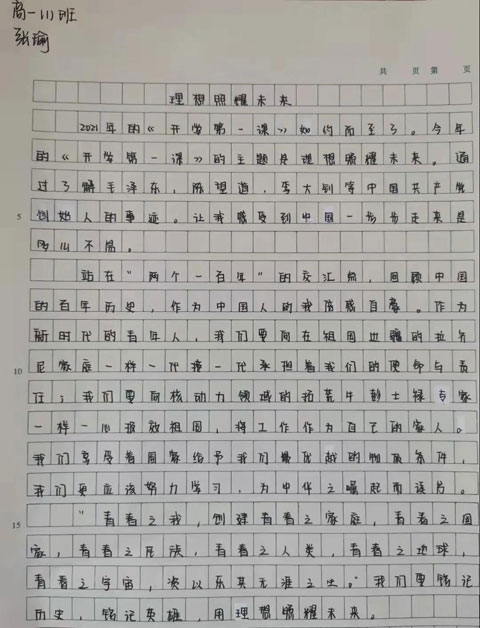 高一(1)班
张瑜
共 页 第 页
理想照耀未来
2021年的《开学第一课》如约而至了。今年
的《开学第一课》的主题是理想照耀未来。通
过了解毛泽东,陈望道,李大钊等中国共产党
创始人的事迹。让我感受到中国一步步走来是
多么不易。
站在"两个一百年"的交汇点,回顾中国
的百年历史,作为中国人的我倍感自豪。作为
新时代的青年人,我们要向在祖国边疆的拉齐
尼家庭一样一代接一代承担着我们的使命与责
任;我们要向核动力领域的拓荒牛彭士禄专家
一样一心报效祖国,将工作作为自己的家人。
我们享受着国家给予我们最优越的物质条件,
我们更应该努力学习,为中华之崛起而读书。
"青春之我,创建青春之家庭,青春之国
家,青春之民族,青春之人类,青春之地球,
青春之宇宙,资以乐其无涯之生。"我们要铭记
历史,铭记英雄,用理想照耀未来。
5
10
15